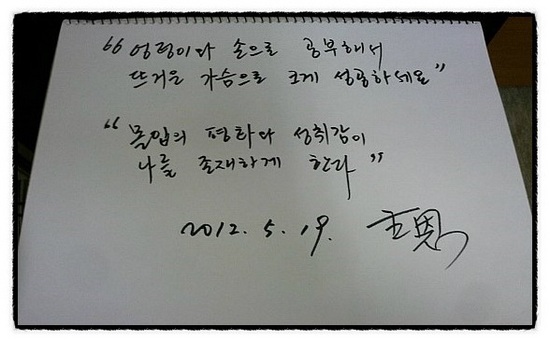 “엉덩이와 손으로 공부해서
뜨거운 가슴으로 크게 성공하세요”
“몰입의 평화와 성취감이
나를 존재하게 한다”
2012. 5. 19.